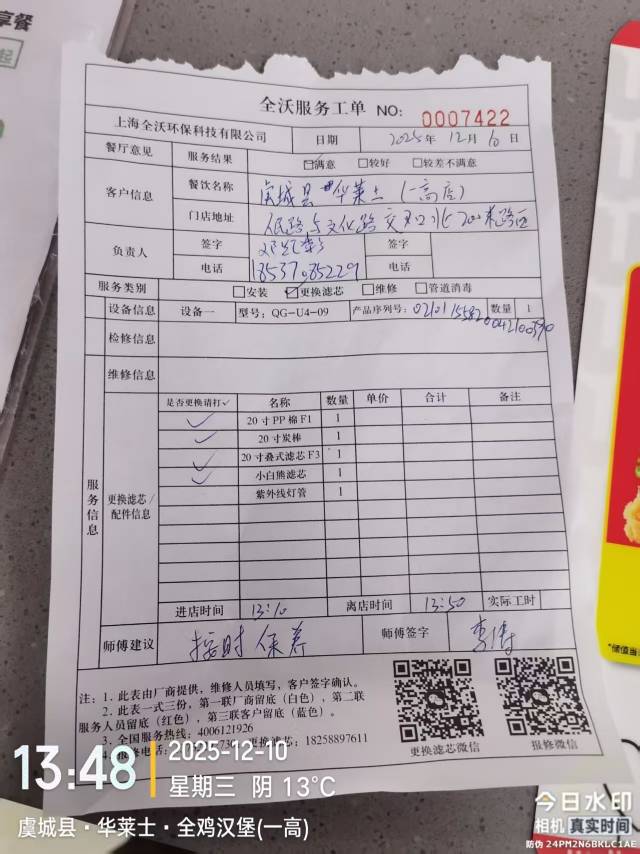 享餐
起
全沃服务工单 NO: 0007422
上海全沃环保科技有限公司 日期 2025年12月10日
餐厅意见 服务结果 ☑满意 □较好 □较差不满意
客户信息 餐饮名称 虞城县华莱士(一高店)
门店地址 人民路与文化路交叉口北200米路西
负责人 签字 签字
电话 18537085229 电话
服务类别 □安装 ☑更换滤芯 □维修 □管道消毒
设备信息 设备一 型号: QG-U4-09 产品序列号: 数量 1
检修信息
维修信息
服务信息
更换滤芯/配件信息
是否更换请打✓ 名称 数量 单价 合计 备注
✓ 20寸PP棉F1 1
✓ 20寸炭棒 1
✓ 20寸叠式滤芯F3 1
✓ 小白熊滤芯 1
紫外线灯管 1
进店时间 13:10 离店时间 13:50 实际工时
师傅建议 按时保养 师傅签字
注: 1. 此表由厂商提供, 维修人员填写, 客户签字确认。
2. 此表一式三份, 第一联厂商留底(白色), 第二联
服务人员留底(红色), 第三联客户留底(蓝色)。
3. 全国服务热线: 4006121926
更换滤芯: 18258897611
更换滤芯微信 报修微信
13:48 2025-12-10
星期三 阴 13°C
虞城县·华莱士·全鸡汉堡(一高)
今日水印
相机 真实时间
防伪 24PM2N6BKLC1AE